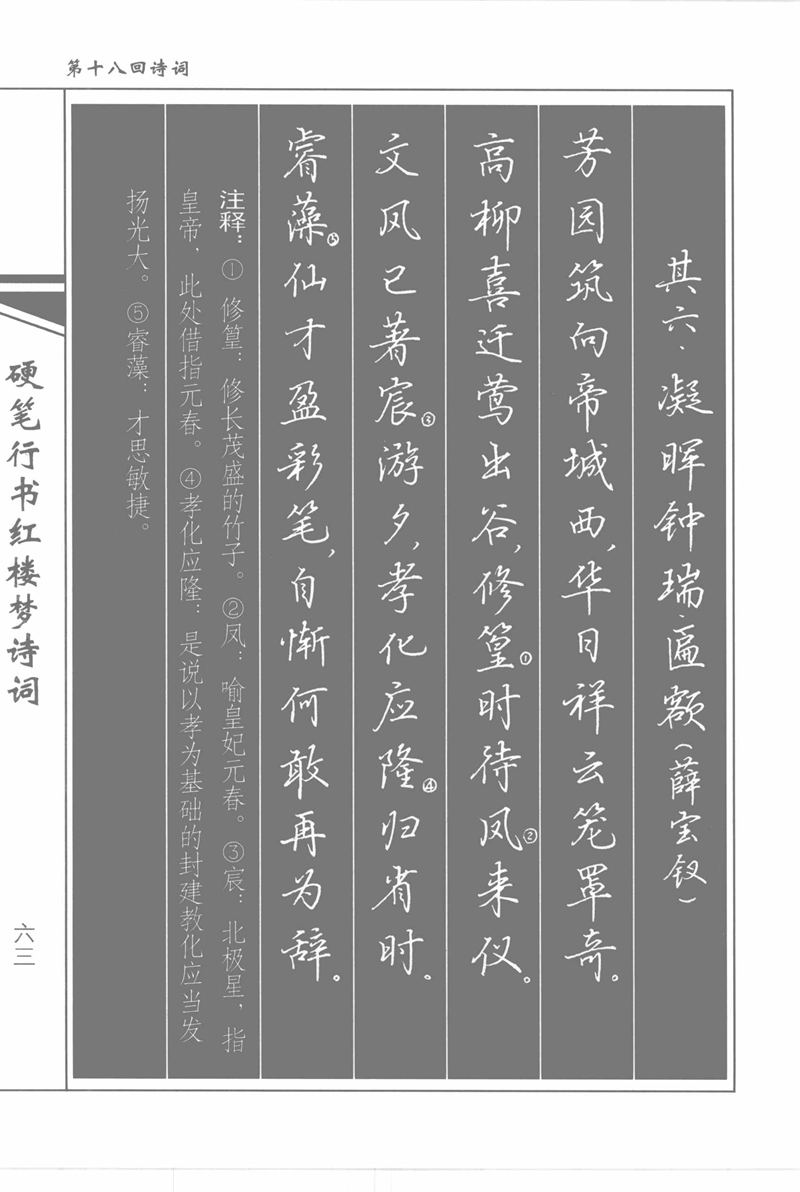 第十八回诗词
其六·凝晖钟瑞匾额（薛宝钗）
芳园筑向帝城西，华日祥云笼罩奇。
高柳喜迁莺出谷，修篁①时待凤②来仪。
文风已著宸③游夕，孝化应隆④归省时。
睿藻⑤仙才盈彩笔，自惭何敢再为辞。
注释：①修篁：修长茂盛的竹子。②凤：喻皇妃元春。③宸：北极星，指
皇帝，此处借指元春。④孝化应隆：是说以孝为基础的封建教化应当发
扬光大。⑤睿藻：才思敏捷。
硬笔行书红楼梦诗词
六三